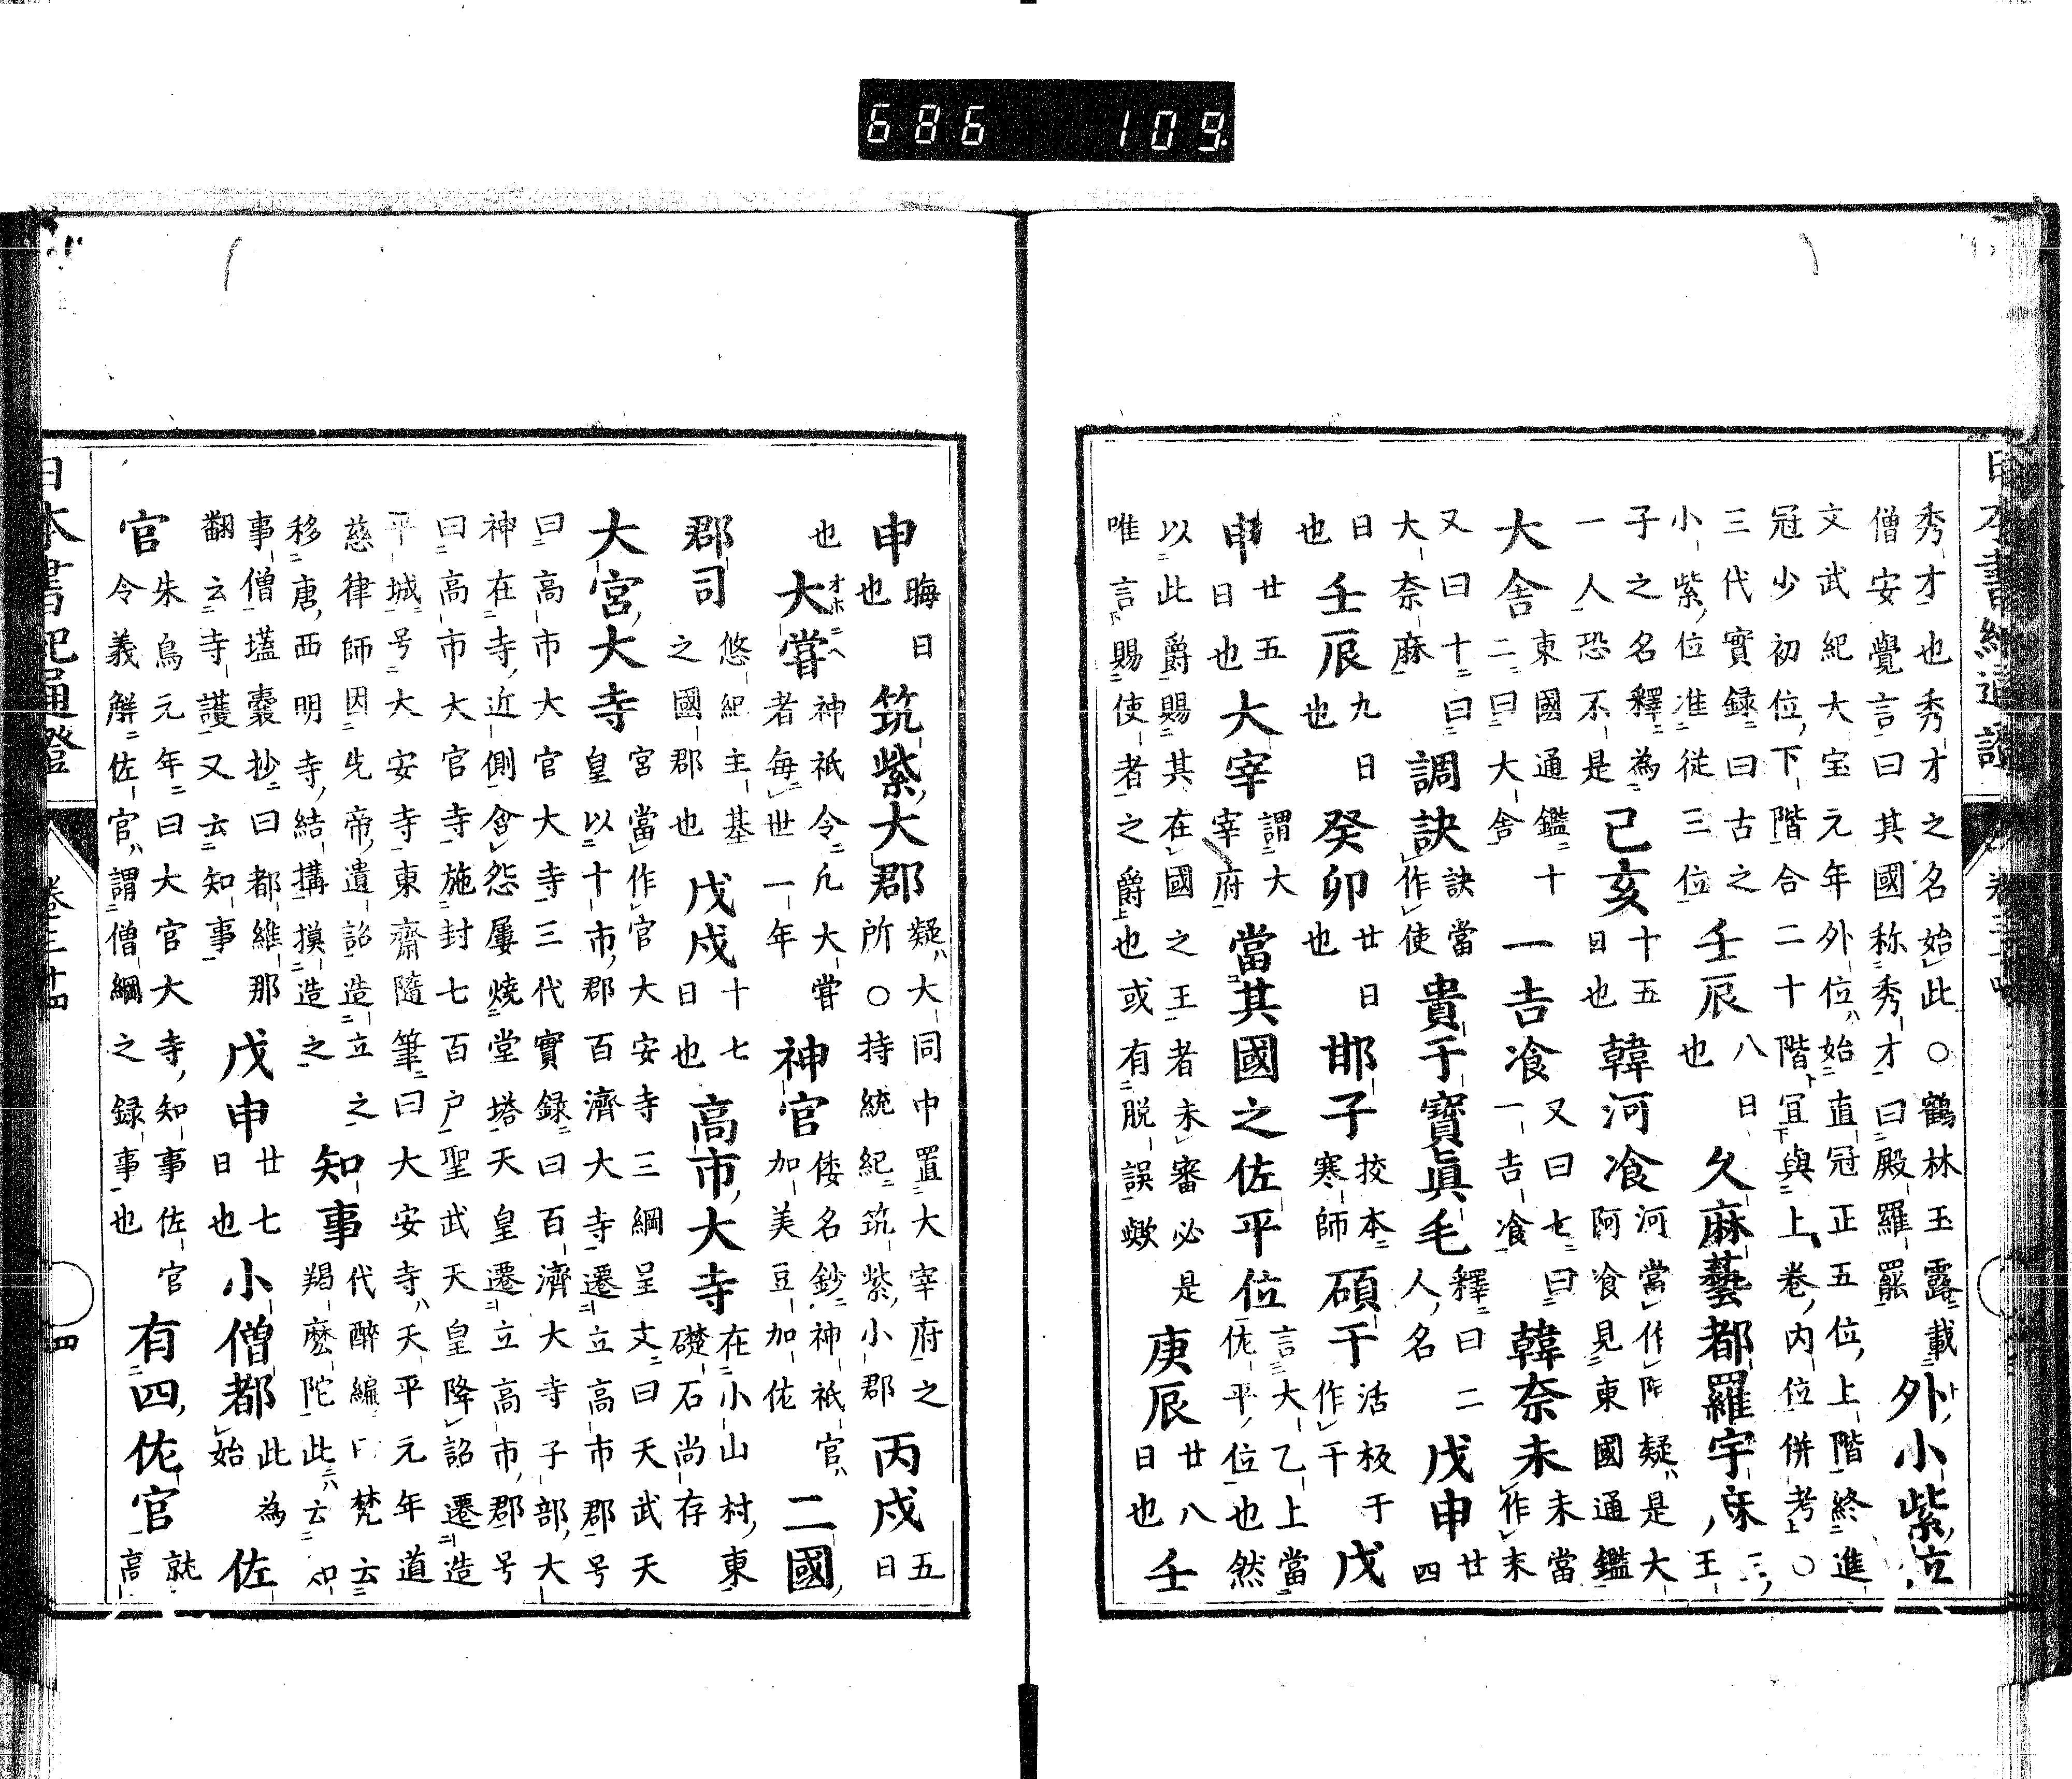 日本書紀通證　卷三十四
秀才也秀才之名始此○鶴林玉露載
僧安覺言曰其國称秀才曰殿羅羆
外小紫位
文武紀大宝元年外位始直冠正五位上階終進
冠少初位下階合二十階宜與上卷内位併考○
三代實録曰古之
小紫位准従三位
壬辰
八日
也
久麻藝都羅宇
王
子之名釋為
一人恐不是
己亥
十五
日也
韓河飡
河當作阿疑是大
阿飡見東國通鑑
大舎
東國通鑑十
二曰大舎
一吉飡
又曰七曰
一吉飡
韓奈未
未當
作末
又曰十曰
大奈麻
調訣
訣當
作使
貴于寶眞毛
釋曰二
人名
戊申
廿四
日也
壬辰
九日
也
癸卯
廿日
也
邯子
挍本
寒師
碩于
活板于
作干
戊
申
廿五
日也
大宰
謂大
宰府
當其國之佐平位
言大乙上當
佐平位也然
以此爵賜其在國之王者未審必是
唯言賜使者之爵也或有脱誤歟
庚辰
廿八
日也
壬
申
晦日
也
筑紫大郡
疑大同中置大宰府之
所○持統紀筑紫小郡
丙戌
五日
也
大嘗
オホニヘ
神祇令凡大嘗
者毎世一年
神官
倭名鈔神祇官
加美豆加佐
二國
郡司
悠紀主基
之國郡也
戊戌
十七
日也
高市大寺
在小山村東
礎石尚存
大宮大寺
宮當作官大安寺三綱呈文曰天武天
皇以十市郡百濟大寺遷立高市郡号
曰高市大官大寺三代實録曰百濟大寺子部大
神在寺近側含怨屢燒堂塔天皇遷立高市郡号
曰高市大官寺施封七百户聖武天皇降詔遷造
平城号大安寺東齋隨筆曰大安寺天平元年道
慈律師因先帝遺詔造立之
移唐西明寺結搆摸造之
知事
代醉編梵云
羯麽陀此云知
事僧壒囊抄曰都維那
翻云寺護又云知事
戊申
廿七
日也
小僧都
此為
始
佐
官
朱鳥元年曰大官大寺知事佐官
令義解佐官謂僧綱之録事也
有四佐官
就
高
日本書紀通證　卷三十四　四
686　109